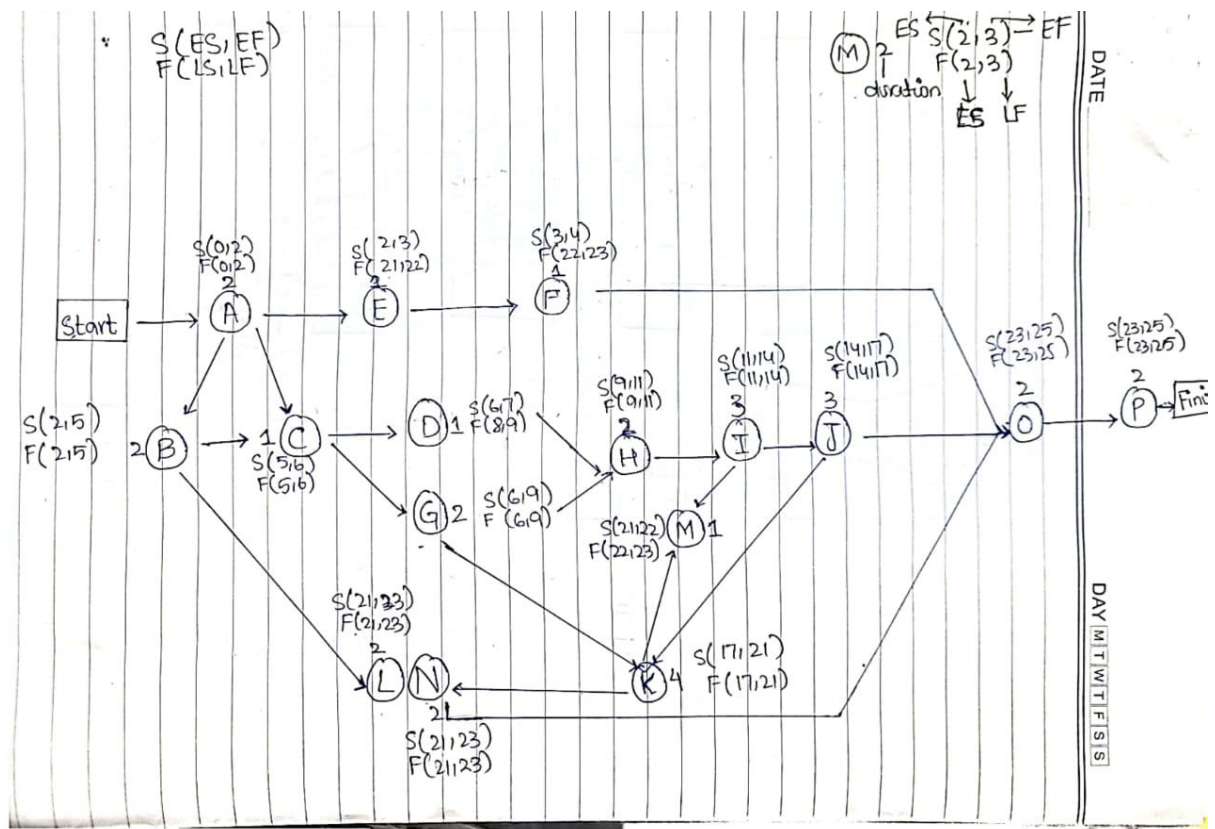 S(ES, EF)
F(LS, LF)
ES S(2, 3) EF
M 2 F(2, 3)
duration ES LF
DATE
S(0,2)
F(0,2)
2
A
S(2,3)
F(21,22)
1
E
S(3,4)
F(22,23)
1
F
Start
S(2,5)
F(2,5)
2 B
1 C
S(5,6)
F(5,6)
D 1
S(6,7)
F(8,9)
G 2
S(6,9)
F(6,9)
S(9,11)
F(9,11)
2
H
S(11,14)
F(11,14)
3
I
S(14,17)
F(14,17)
3
J
S(21,22)
F(22,23)
M 1
S(23,25)
F(23,25)
2
O
S(23,25)
F(23,25)
2
P
Fini
S(21,23)
F(21,23)
2
L N
2
S(21,23)
F(21,23)
K 4
S(17,21)
F(17,21)
DAY M T W T F S S